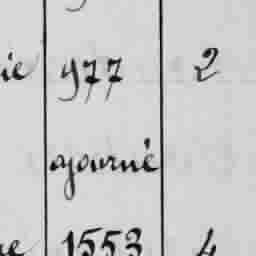 ie 977 2
ajourné
ne 1553 4